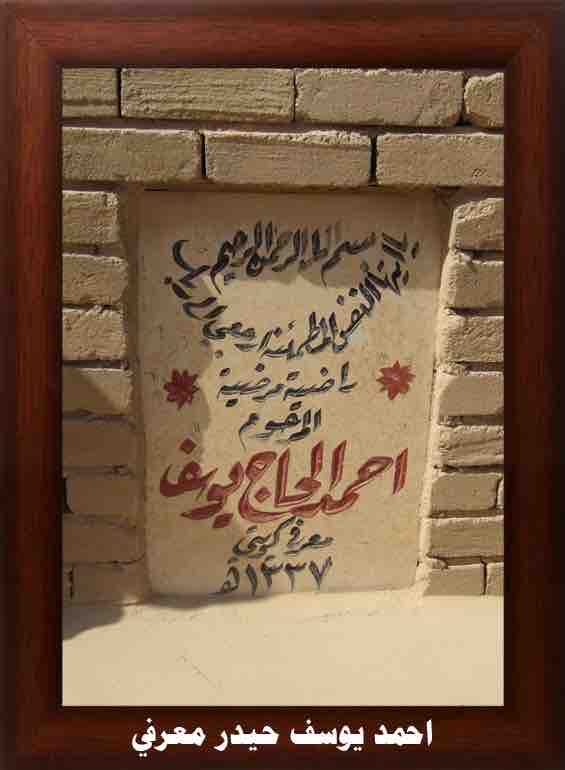 بسم الله الرحمن الرحيم
يا ايتها النفس المطمئنة ارجعي الى ربك
راضية مرضية
المرحوم
احمد الحاج يوسف
معرفي كويتي
١٣٣٧ه
احمد يوسف حيدر معرفي